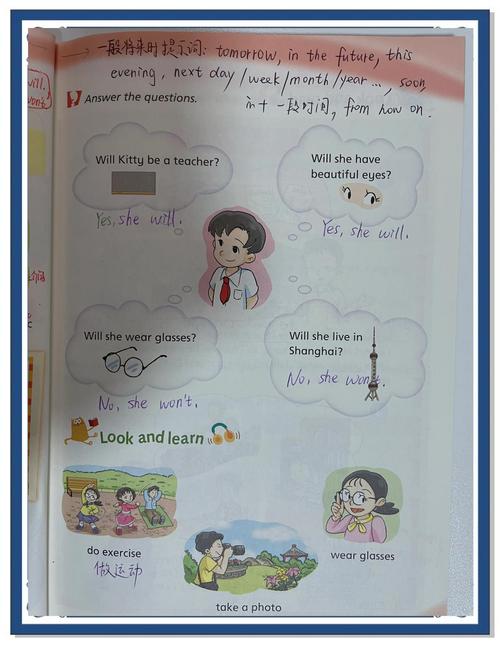 一般将来时提示词: tomorrow, in the future, this
evening, next day/week/month/year..., soon,
in + 一段时间, from now on.
Answer the questions.
Will Kitty be a teacher?
Yes, she will.
Will she have
beautiful eyes?
Yes, she will.
Will she wear glasses?
No, she won't.
Will she live in
Shanghai?
No, she won't.
Look and learn
do exercise
做运动
take a photo
wear glasses
will.
won't